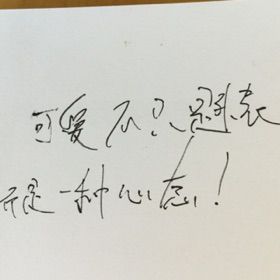 可爱不只是外表
而是一种心态！